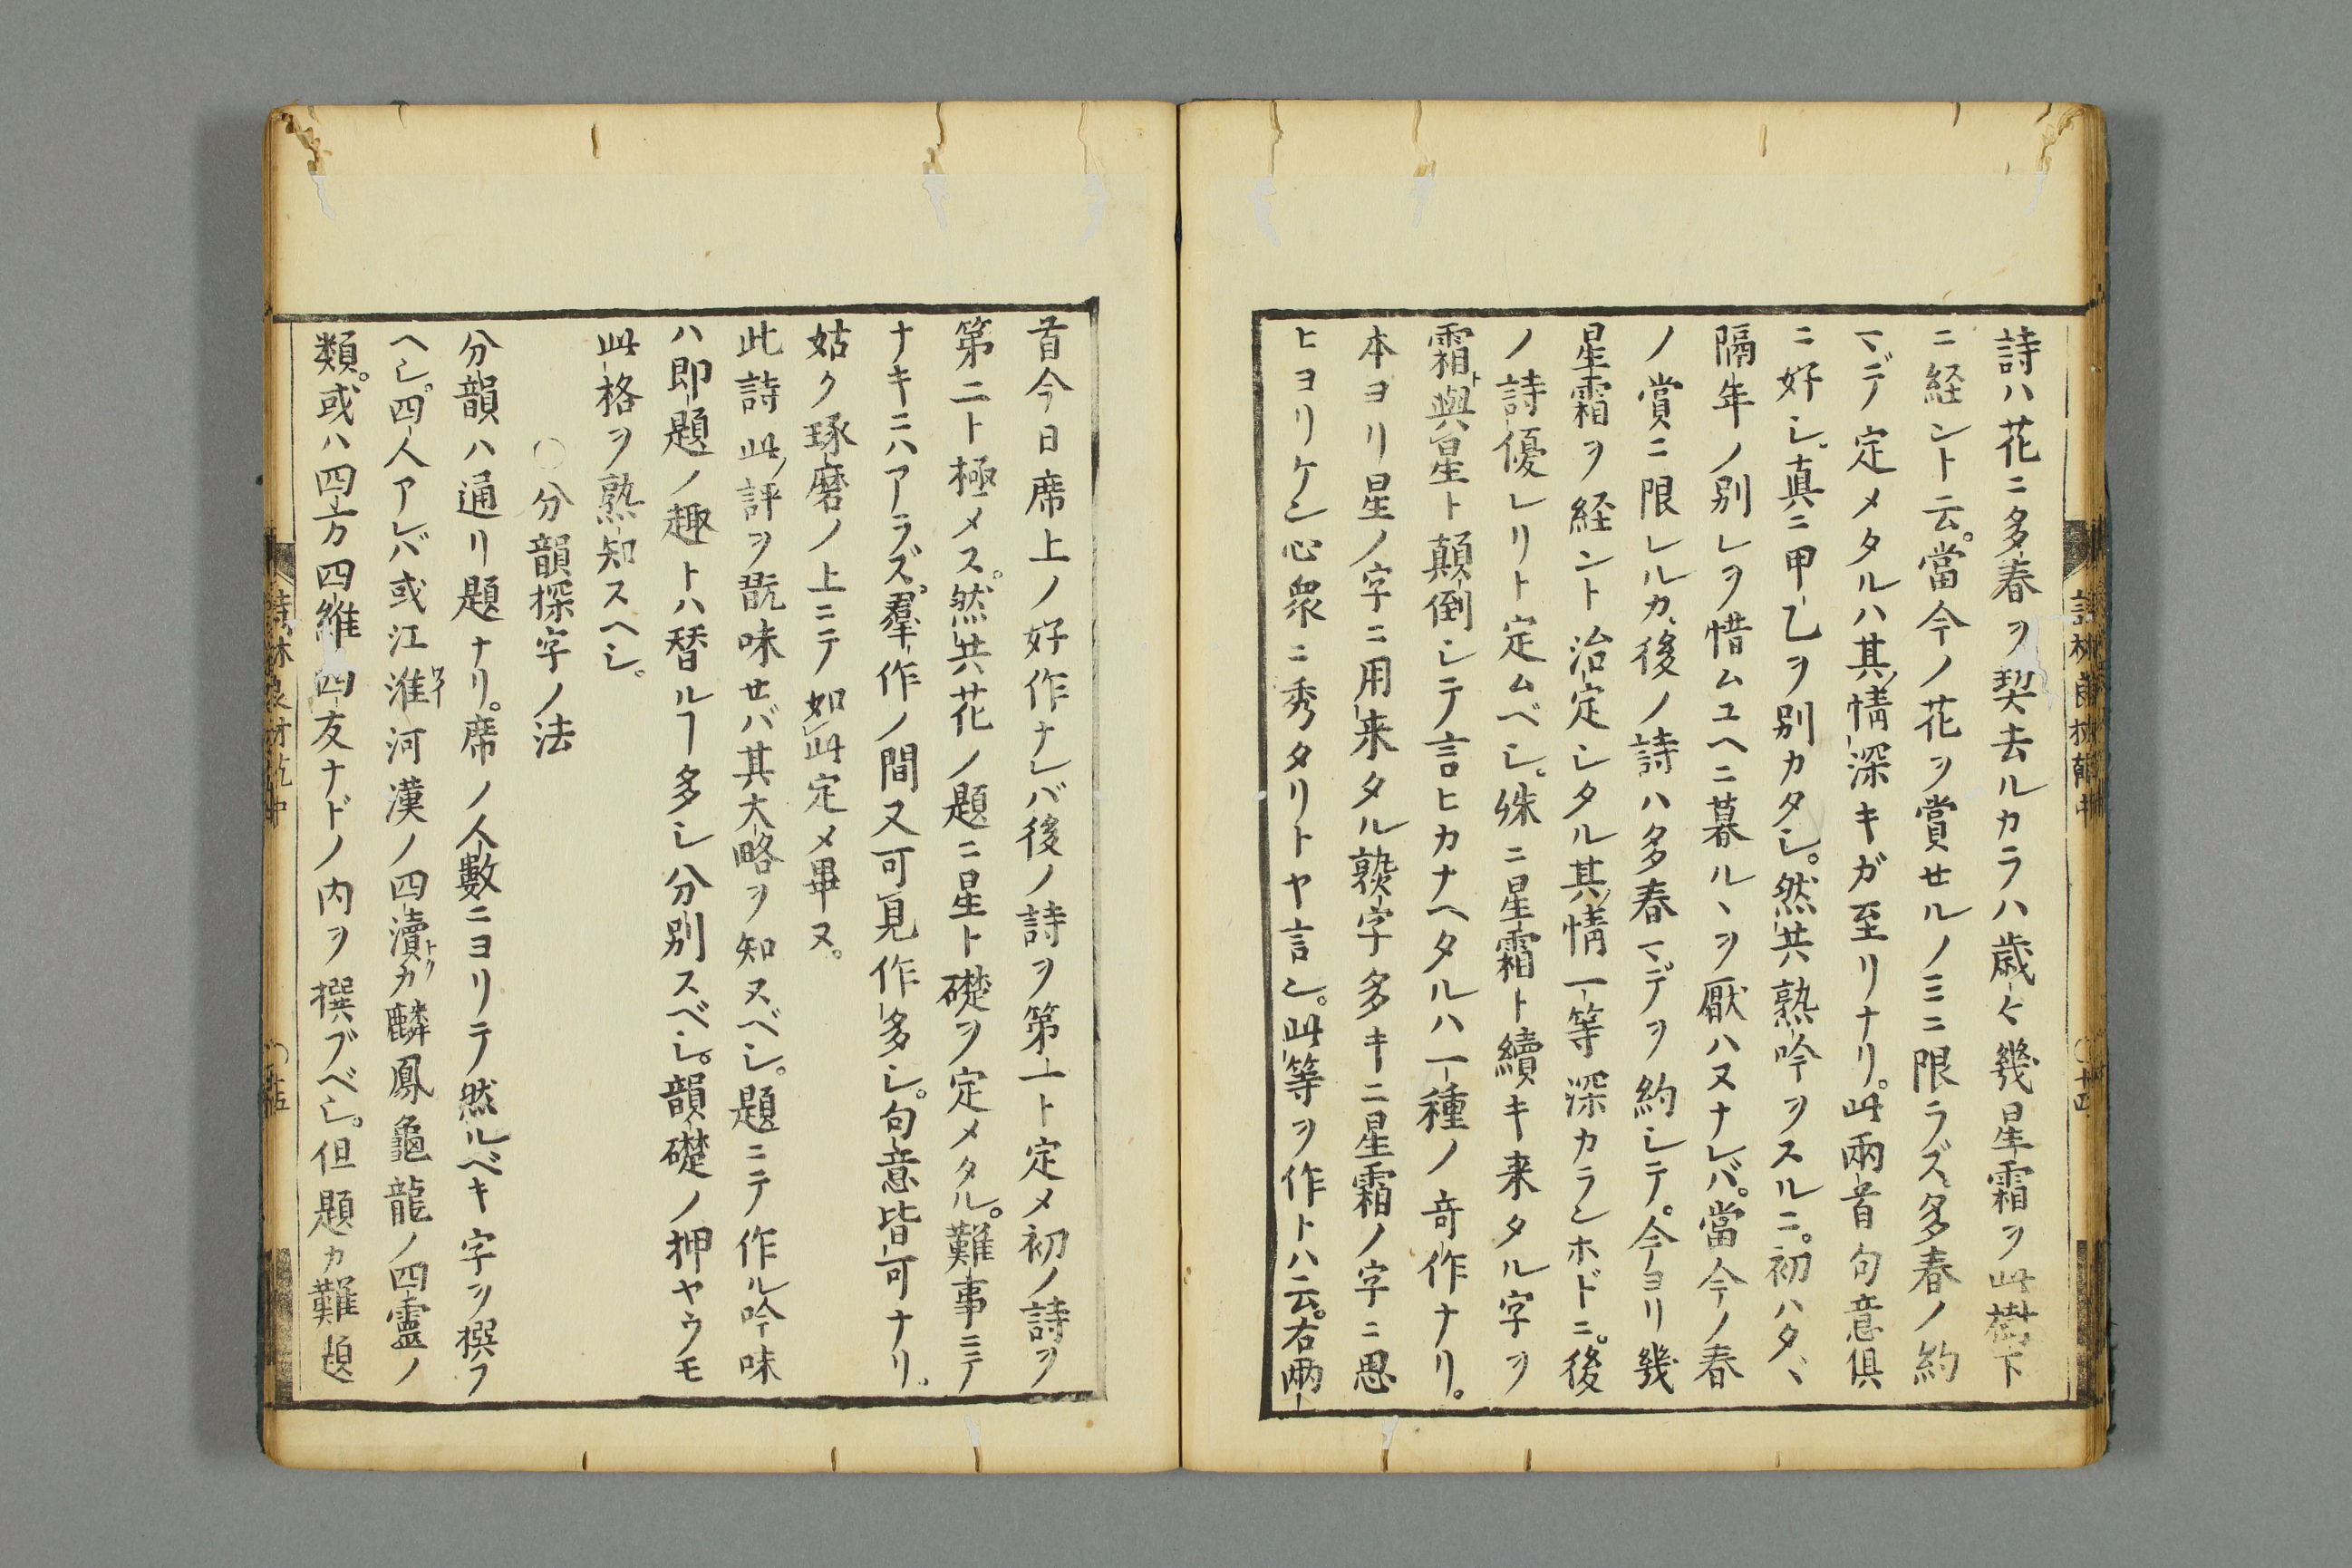 詩ハ花ニ多春ヲ契去ルカラハ歳々幾星霜ヲ此樹下
ニ経ント云。當今ノ花ヲ賞セルノミニ限ラズ多春ノ約
マデテ定メタルハ其情深キガ至リナリ。此兩首句意俱
ニ好シ。真ニ甲乙ヲ別カタシ。然共熟吟ヲスルニ。初ハタヾ
隔年ノ別レヲ惜ムユヘニ暮ルヽヲ厭ハヌナレバ。當今ノ春
ノ賞ニ限レルカ、後ノ詩ハ多春マデヲ約シテ。今ヨリ幾
星霜ヲ経ント治定シタル其情一等深カランホドニ。後
ノ詩優レリト定ムベシ。殊ニ星霜ト續キ来タル字ヲ
霜ト與星ト顛倒シテ言ヒカナヘタルハ一種ノ奇作ナリ。
本ヨリ星ノ字ニ用来タル熟字多キニ星霜ノ字ニ思
ヒヨリケン心衆ニ秀タリトヤ言ン。此等ヲ作トハ云。右兩
首今日席上ノ好作ナレバ後ノ詩ヲ第一ト定メ初ノ詩ヲ
第二ト極メス。然共花ノ題ニ星ト礎ヲ定メタル。難事ニテ
ナキニハアラズ。羣作ノ間又可見作多シ。句意皆可ナリ。
姑ク琢磨ノ上ニテ如此定メ畢ヌ。
此詩此ノ評ヲ翫味セバ其大略ヲ知ヌベシ。題ニテ作ル吟味
ハ即題ノ趣トハ替ルヿ多シ分別スベシ。韻礎ノ押ヤウモ
此格ヲ熟知スヘシ。
○分韻探字ノ法
分韻ハ通リ題ナリ。席ノ人數ニヨリテ然ルベキ字ヲ撰フ
ヘシ。四人アレバ或江淮ワイ河漢ノ四瀆トクカ麟鳳龜龍ノ四靈ノ
類。或ハ四方四維四友ナドノ内ヲ撰ブベシ。但題カ難題